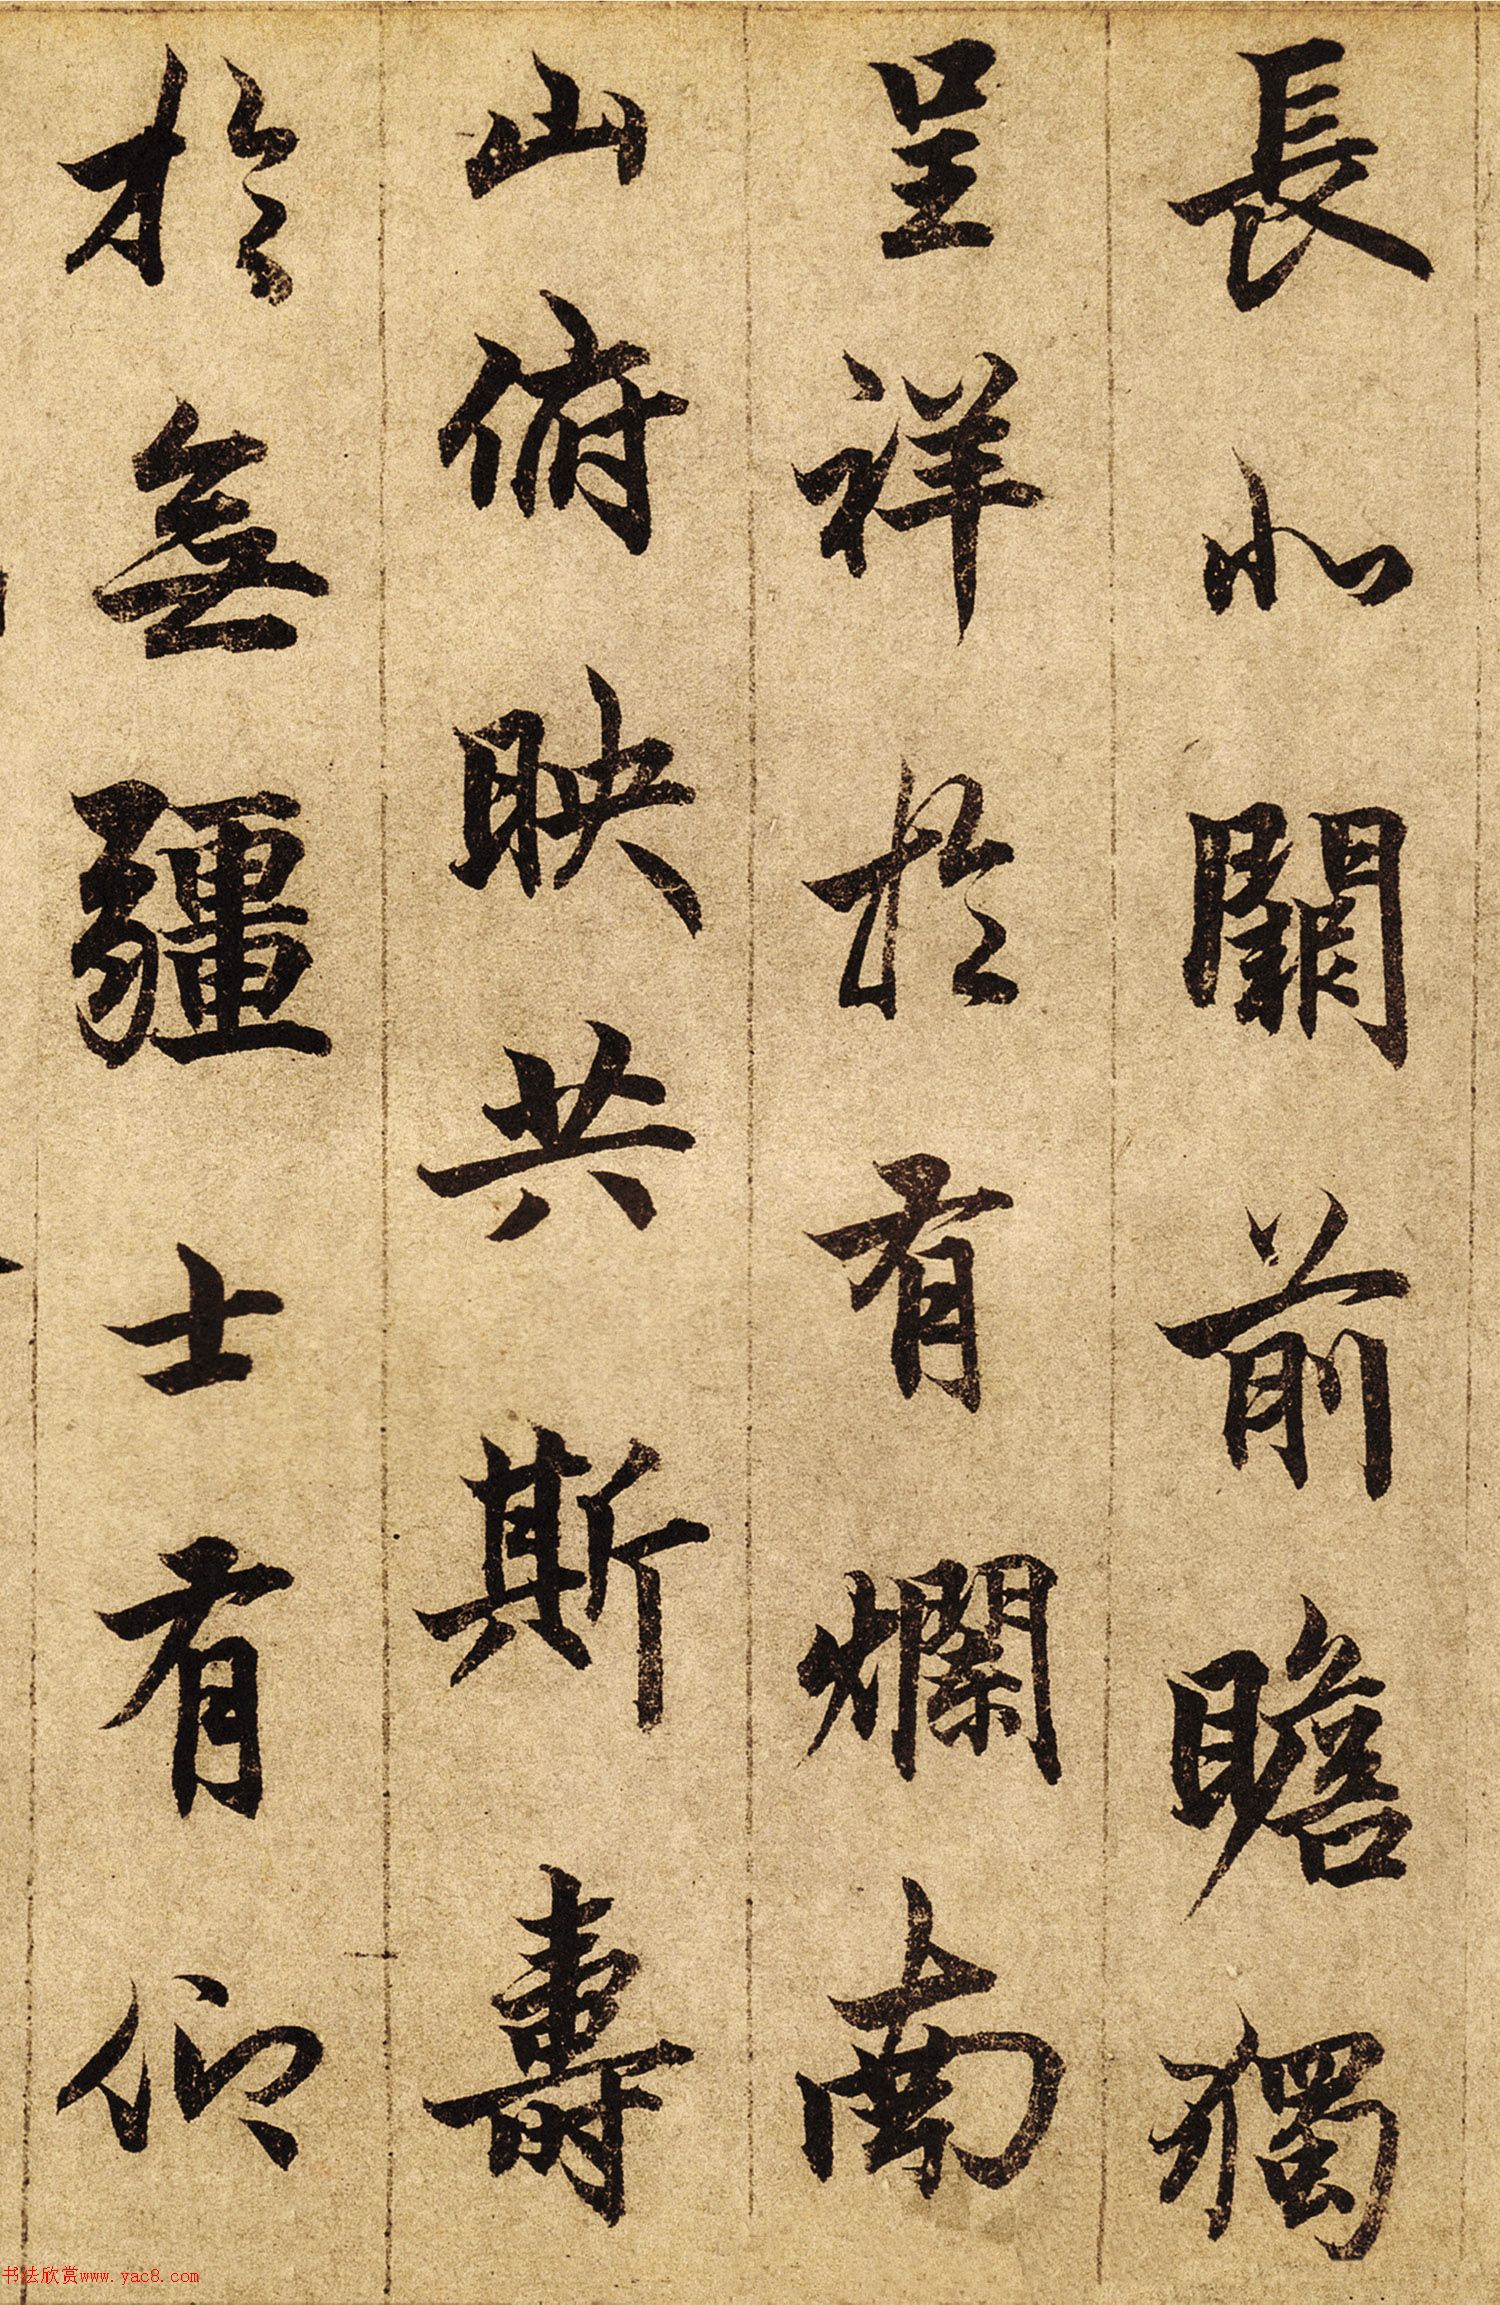 長北闕前瞻獨
呈祥於有爛南
山俯映共斯壽
於無疆士有仰
书法欣赏www.yac8.com